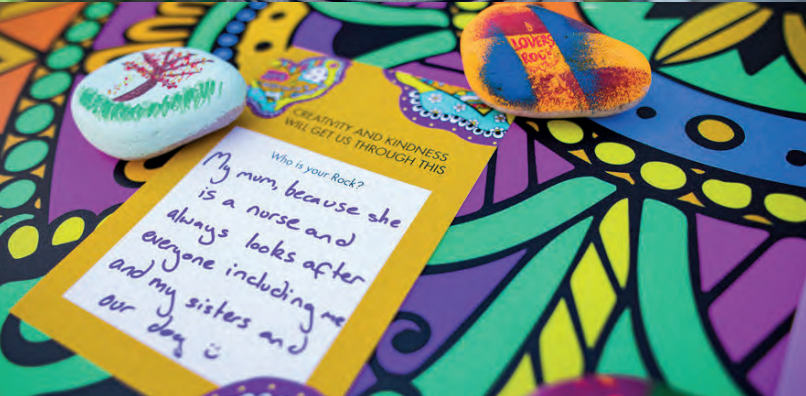 LOVERS
ROCK
CREATIVITY AND KINDNESS
WILL GET US THROUGH THIS
Who is your Rock?
My mum, because she
is a nurse and
always looks after
everyone including me
and my sisters and
our dog